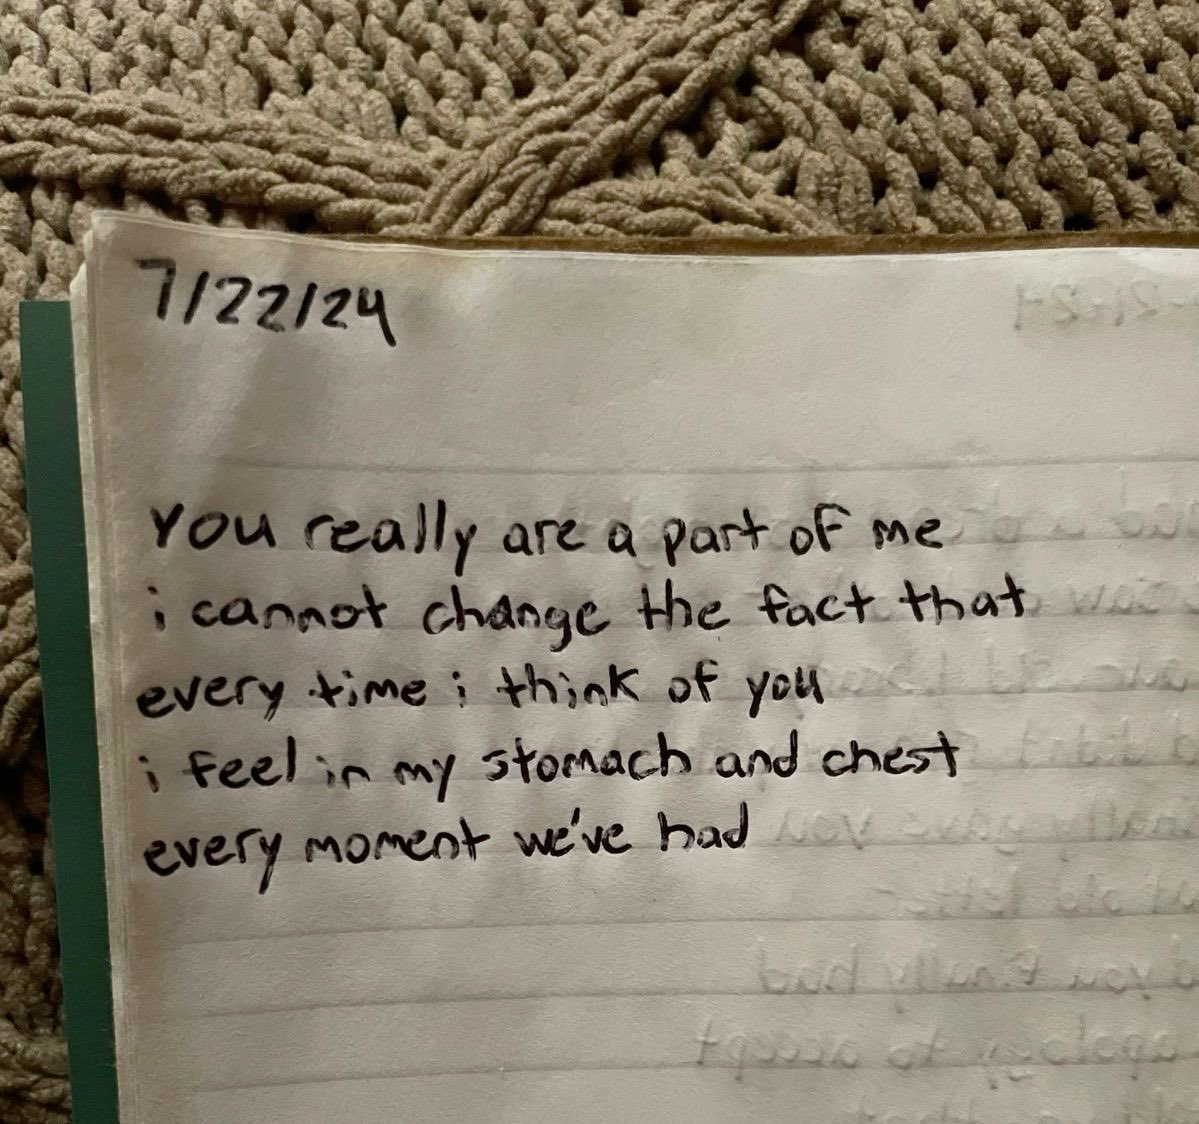 7/22/24
You really are a part of me
i cannot change the fact that
every time i think of you
i feel in my stomach and chest
every moment we've had